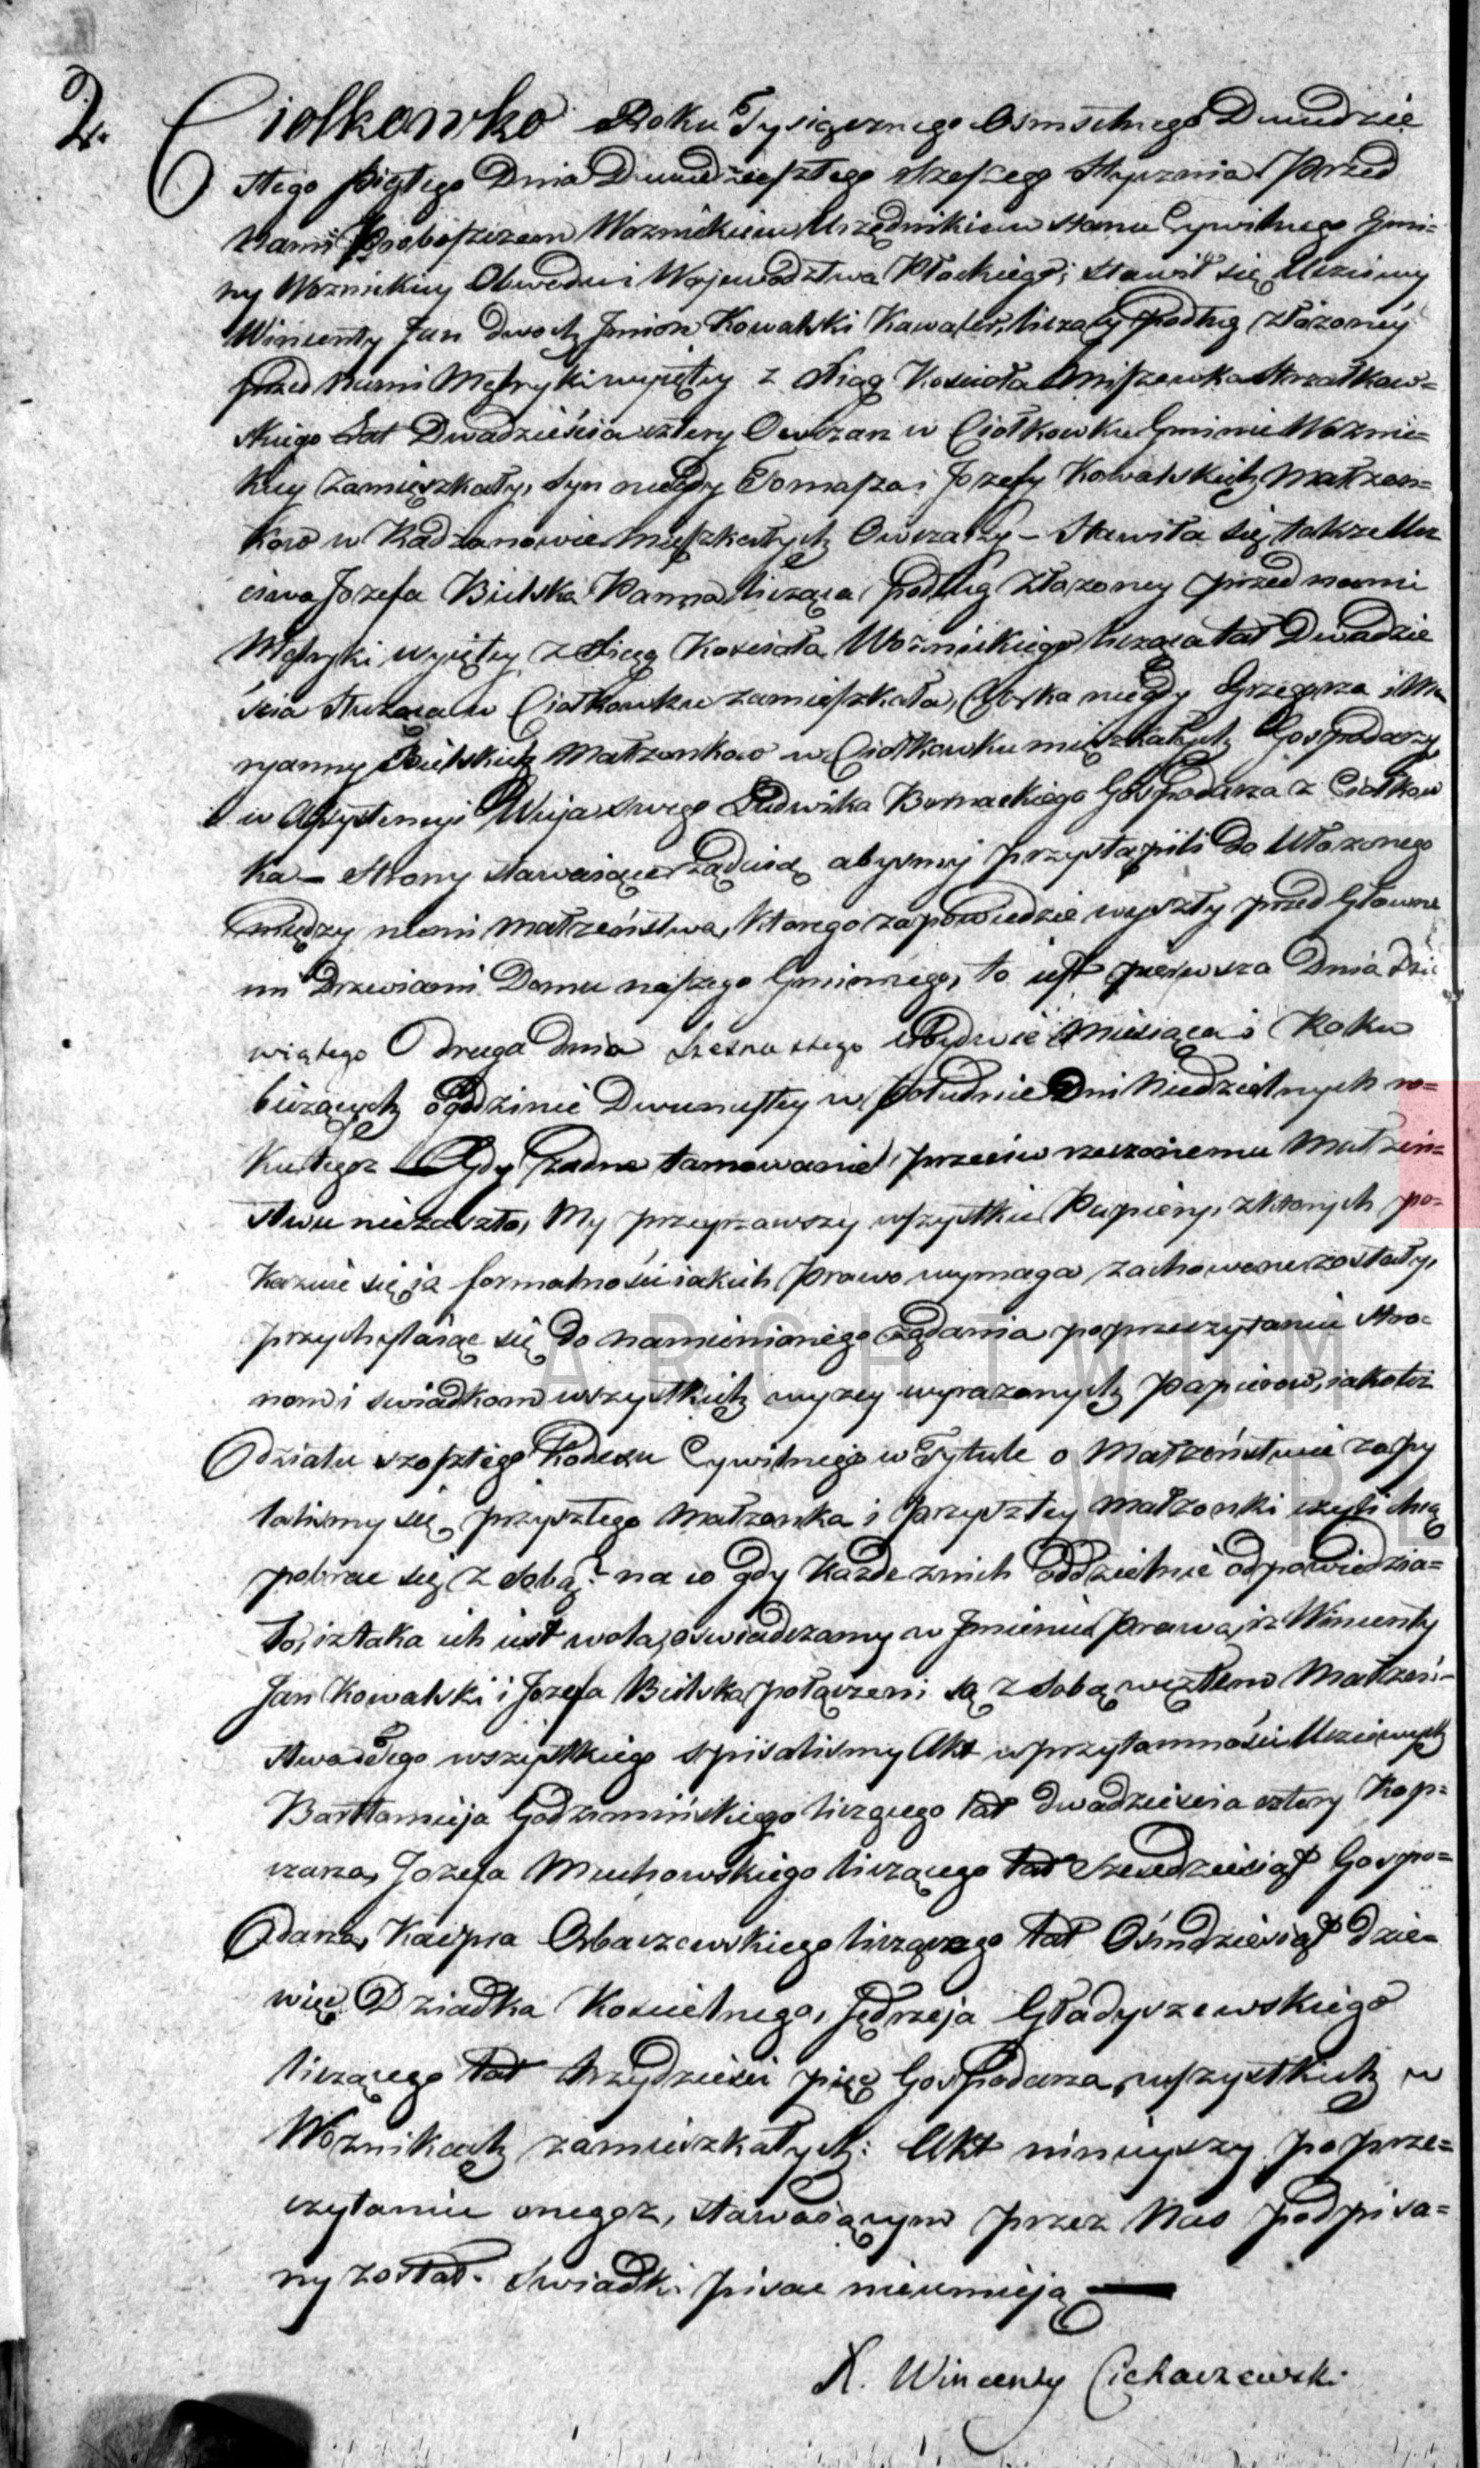 2. Ciołkowko Roku Tysiącznego Osmsetnego Dwudzie
stego piątego Dnia Dwudziestego trzeszego Stycznia. Przed
Nami Proboszczem Woznickim Urzędnikiem Stanu Cywilnego Gmi=
ny Woznickiey Obwodu i Wojewodztwa Płockiego; stawił się Uczciwy
Wincenty Jan dwoch Jmion Kowalski Kawaler, liczący podług złożoney
przed Nami Metryki wyiętey z Xiąg Kościoła Miszewka Strzałkow=
skiego Lat Dwadzieścia cztery Owczarz w Ciołkowku Gminie Wozni=
kiey Zamięszkały, Syn niegdy Tomasza i Jozefy Kowalskich Małżon=
kow w Radzanowie Mięszkałych Owczarzy – Stawiła się także Ucz
ciwa Jozefa Bielska Panna licząca podług Złożoney przed nami
Metryki wyiętey z Xiąg Kościoła Woźnickiego licząca lat Dwadzie
ścia Służąca w Ciołkowku zamieszkała, Corka niegdy Grzegorza i Ma
ryanny Bielskich Małżonkow w Ciołkowku mięszkałych Gospodarzy
w Assystencyi Wuja swego Ludwika Gospodarza z Ciołkow
ka – Strony stawaiące żądaią abysmy przystąpili do Ułożonego
między niemi małżeństwa, ktorego zapowiedzie wyszły przed Głowne
mi Drzwiami Domu naszego Gminnego, to iest pierwsza Dnia dzie
wiątego druga dnia szesnastego obydwie Miesiąca i Roku
bieżących o godzinie Dwunastey w południe Dni Niedzielnych ro=
ku tegoż Gdy żadne tamowanie przeciw rzeczonemu Małżeń=
stwu niezaszło, My przeyrzawszy wszystkie Papiery, z ktorych po=
kazuie się iż formalności iakich prawo wymaga zachowane zostały,
przychylaiąc się do namienionego żądania po przeczytaniu stro=
nom i swiadkom wszystkich wyżey wyrażonych papierow, iakoteż
działu szostego Kodexu Cywilnego w Tytule o Małżeństwie zapy
talismy się przyszłego małżonka i przyszłey małżonki czyli chcą
pobrac się z sobą? na co gdy każde z nich oddzielnie odpowiedzia=
ło, iż taka ich iest wola, oswiadczamy w Jmieniu prawa, iż Wincenty
Jan Kowalski i Jozefa Bielska połączeni są z sobą węzłem Małżeń=
stwa Czego wszystkiego spisalismy Akt w przytomności Uczciwych
Bartłomieja Godziminskiego liczącego lat dwadzieścia cztery
Jozefa Muchowskiego liczącego lat szesdziesiąt Gospo=
darza, Kacpra Orbaczewskiego liczącego lat Osmdziesiąt dzie=
więc Dziadka Kościelnego, Jędrzeja Gładyszewskiego
liczącego lat trzydzieści pięc Gospodarza, wszystkich w
Woznikach zamieszkałych: Akt ninieyszy po prze=
czytaniu onegoż, stawaiącym przez Nas podpisa=
ny został. Swiadki pisac nieumieją —
X. Wincenty Cichaczewski
ARCHIWUM
W PŁ